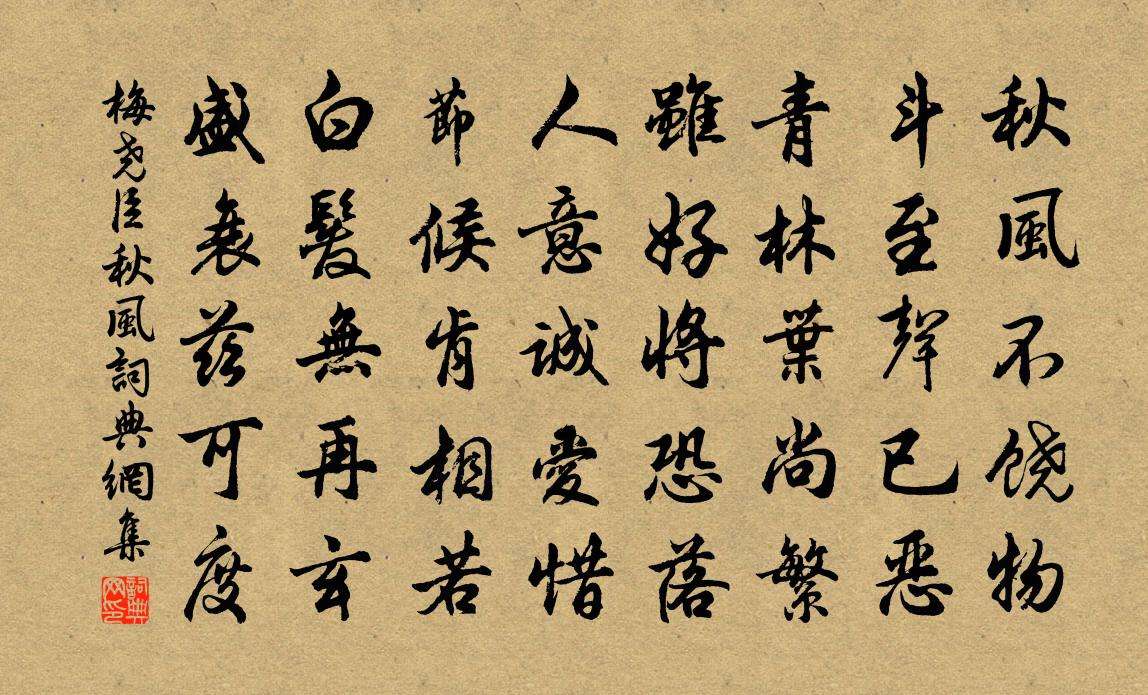 秋風不饶物
斗至聲已惡
青林葉尚繁
雖好將恐落
人意誠愛惜
節候肯相若
白髮無再玄
盛衰茲可度
梅尧臣秋風詞典網集
詞典网印